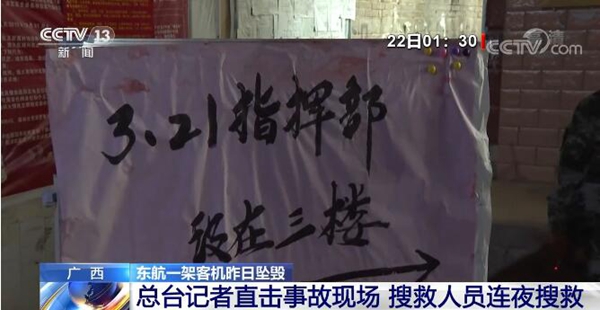 CCTV 13
新闻
22日01:30
CCTV.com
3.21指挥部
设在三楼
广西
东航一架客机昨日坠毁
总台记者直击事故现场 搜救人员连夜搜救